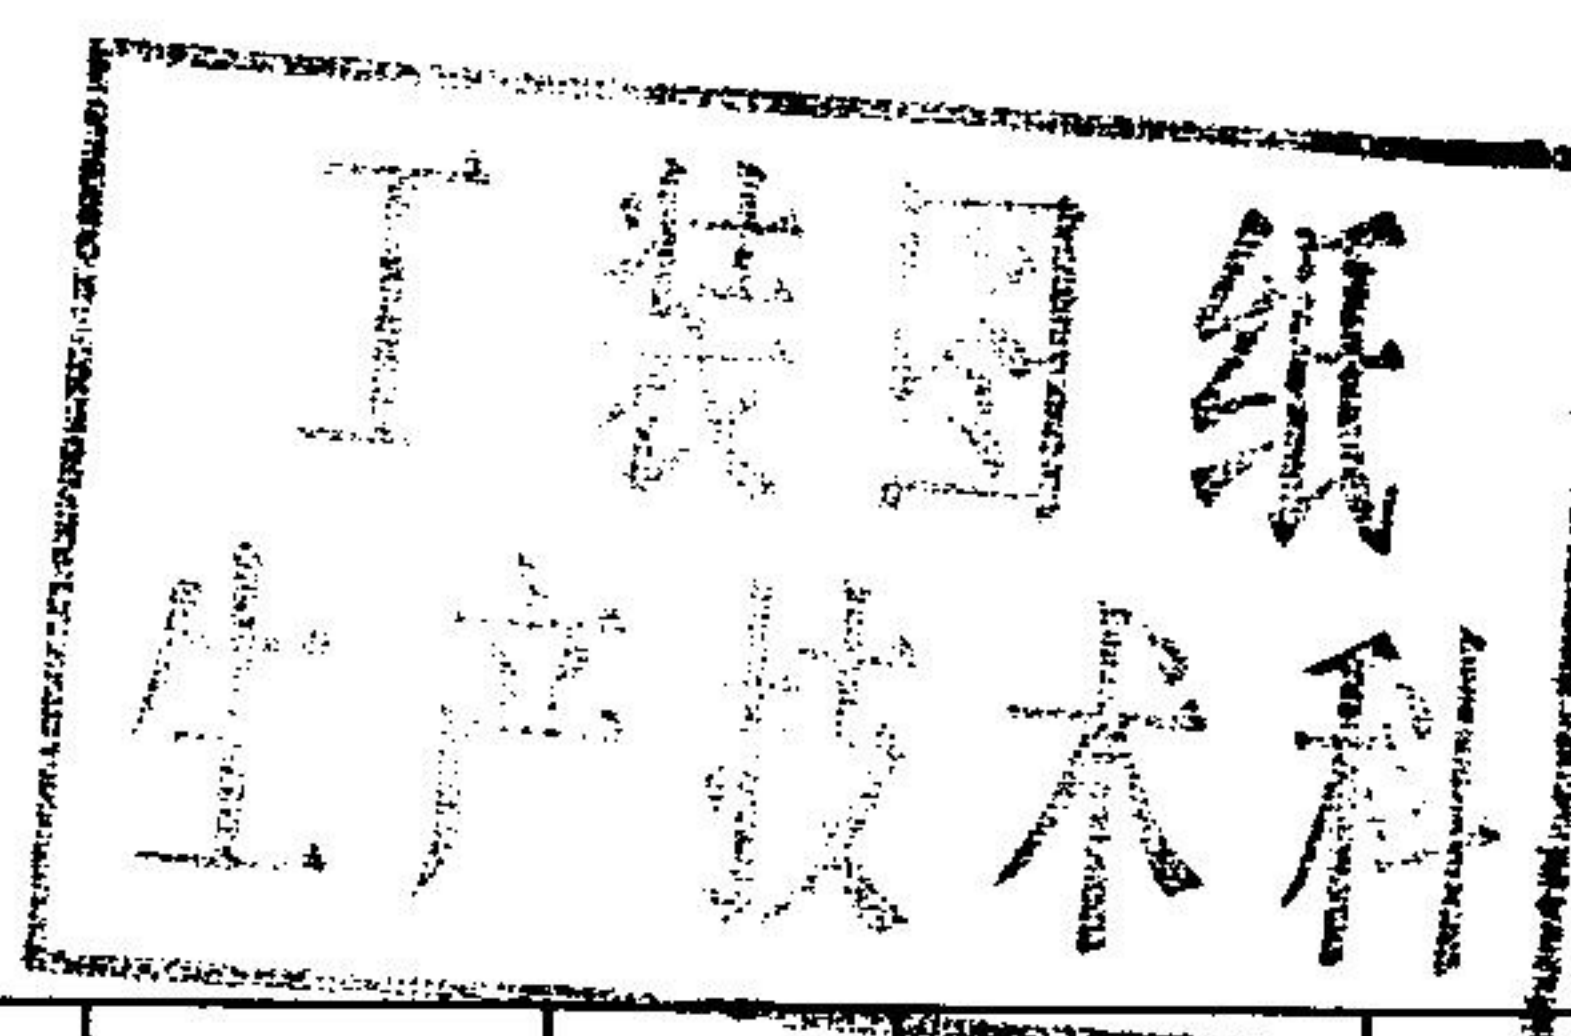 工装图纸
生产技术科